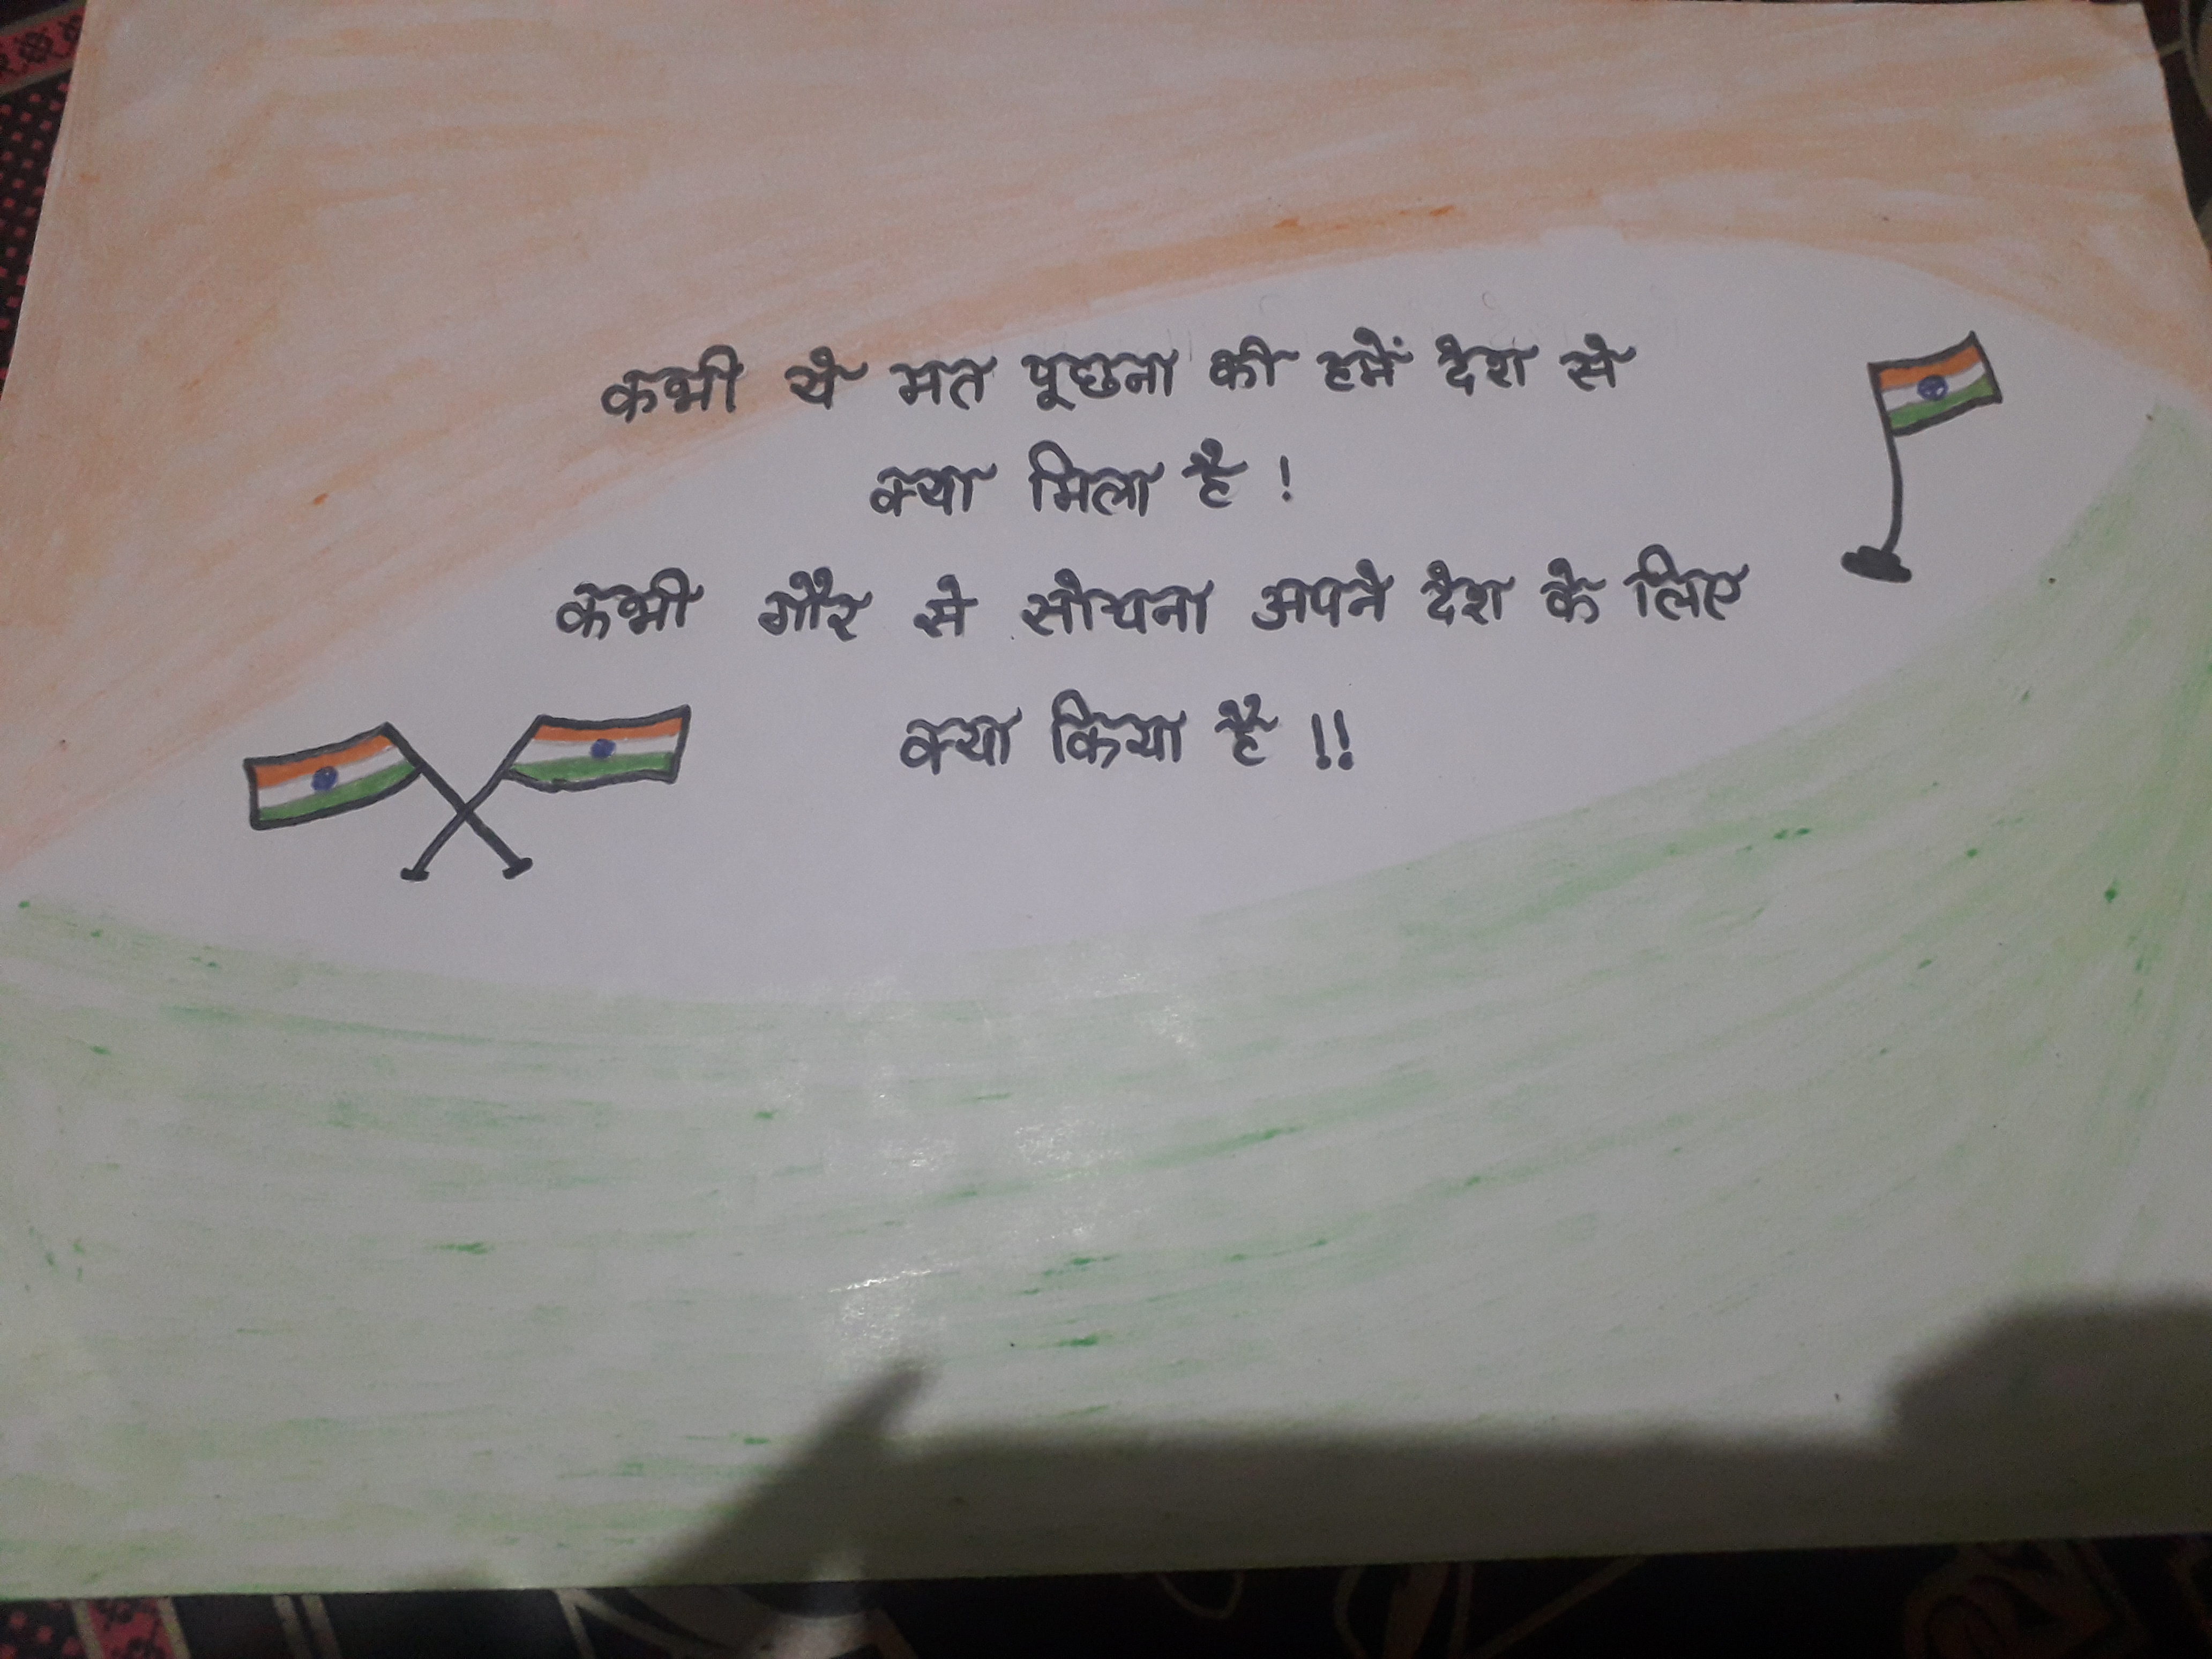 कभी ये मत पूछना की हमें देश से
क्या मिला है !
कभी गौर से सोचना अपने देश के लिए
क्या किया है !!